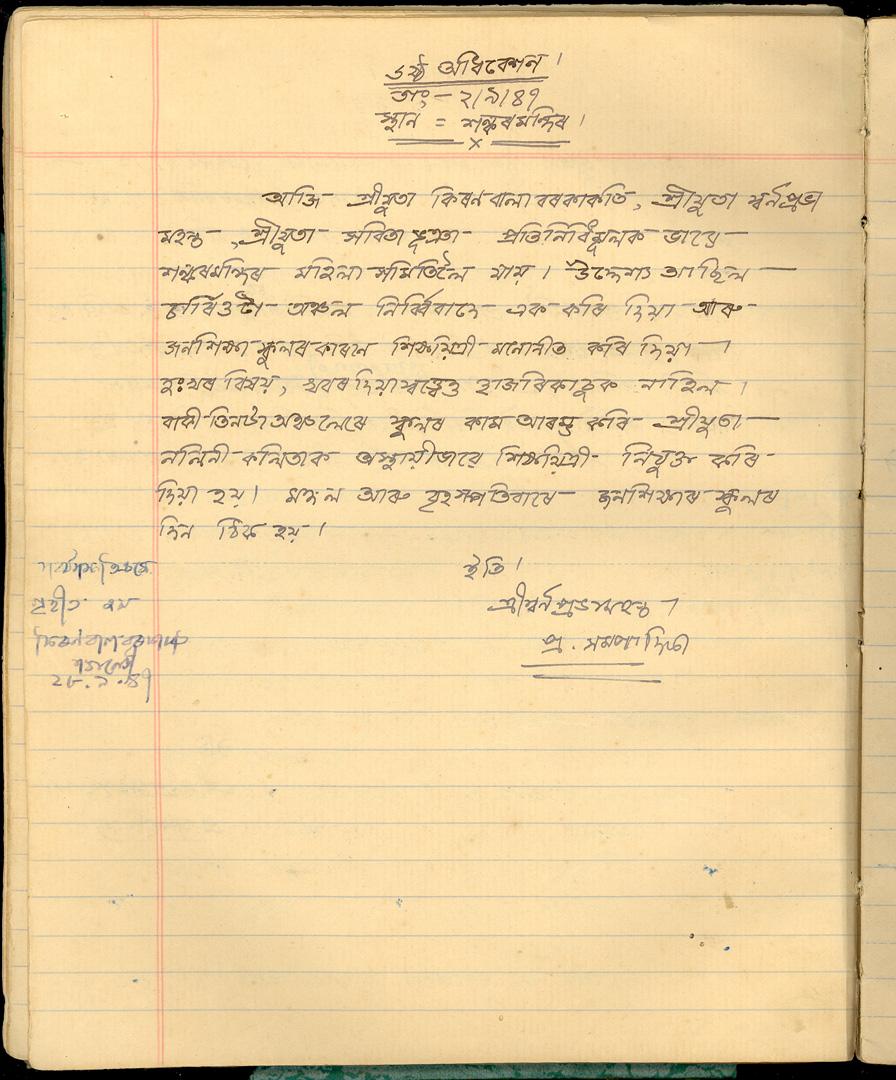 ৬ষ্ঠ অধিবেশন।
তাং – ২/৯/৪৭
স্থান = শঙ্কৰমন্দিৰ।
x
আজি শ্ৰীযুতা কিৰণবালা বৰকাকতি, শ্ৰীযুতা স্বৰ্নপ্ৰভা
মহন্ত, শ্ৰীযুতা সবিতা প্ৰতিনিধিমূলক ভাৱে
শঙ্কৰমন্দিৰ মহিলা সমিতিলৈ যায়। উদ্দেশ্য আছিল
চাৰিওটা অঞ্চল নিৰ্ব্বিবাদে এক কৰি দিয়া আৰু
জনশিক্ষা স্কুলৰ কাৰনে শিক্ষয়িত্ৰী মনোনীত কৰি দিয়া।
দুঃখৰ বিষয়, খবৰ দিয়া স্বত্ত্বেও হাজৰিকা নাহিল।
বাকী তিনটা অঞ্চলেৰে স্কুলৰ কাম আৰম্ভ কৰি শ্ৰীযুতা
নলিনী কলিতাক অস্থায়ীভাৱে শিক্ষয়িত্ৰী নিযুক্ত কৰি
দিয়া হয়। মঙ্গল আৰু বৃহস্পতিবাৰে জনশিক্ষাৰ স্কুলৰ
দিন ঠিক হয়।
ইতি।
শ্ৰীস্বৰ্নপ্ৰভা মহন্ত।
প্ৰ. সম্পাদিকা
গৃহীত হয়
কিৰণবালা বৰকাকতি
সভানেত্ৰী
২৮.৯.৪৭